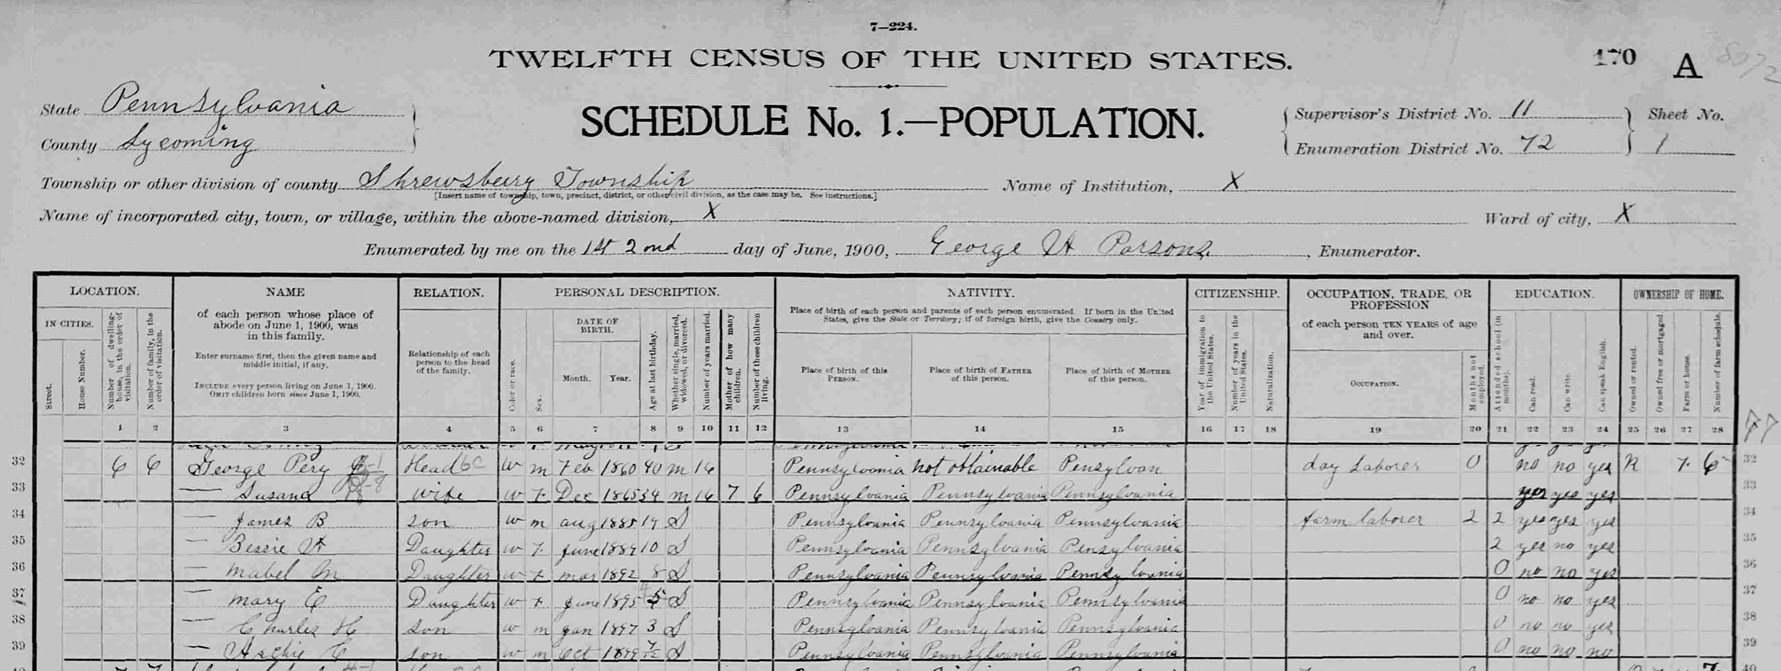 7—224.
170 A
TWELFTH CENSUS OF THE UNITED STATES.
State Pennsylvania
County Lycoming
SCHEDULE No. 1.—POPULATION.
Supervisor's District No. 11
Enumeration District No. 72
Sheet No.
1
Township or other division of county Shrewsberry Township
Name of Institution, X
[Insert name of township, town, precinct, district, or other civil division, as the case may be. See instructions.]
Name of incorporated city, town, or village, within the above-named division, X
Ward of city, X
Enumerated by me on the 1st 2nd day of June, 1900, George H Parsons, Enumerator.
LOCATION.
IN CITIES.
Street.
House Number.
Number of dwelling-house, in the order of visitation.
Number of family, in the order of visitation.
NAME
of each person whose place of abode on June 1, 1900, was in this family.
Enter surname first, then the given name and middle initial, if any.
INCLUDE every person living on June 1, 1900.
OMIT children born since June 1, 1900.
RELATION.
Relationship of each person to the head of the family.
PERSONAL DESCRIPTION.
Color or race.
Sex.
DATE OF BIRTH.
Month. Year.
Age at last birthday.
Whether single, married, widowed, or divorced.
Number of years married.
Mother of how many children.
Number of these children living.
NATIVITY.
Place of birth of each person and parents of each person enumerated. If born in the United States, give the State or Territory; if of foreign birth, give the Country only.
Place of birth of this PERSON.
Place of birth of FATHER of this person.
Place of birth of MOTHER of this person.
CITIZENSHIP.
Year of immigration to the United States.
Number of years in the United States.
Naturalization.
OCCUPATION, TRADE, OR PROFESSION
of each person TEN YEARS of age and over.
OCCUPATION.
Months not employed.
EDUCATION.
Attended school (in months).
Can read.
Can write.
Can speak English.
OWNERSHIP OF HOME.
Owned or rented.
Owned free or mortgaged.
Farm or house.
Number of farm schedule.
1 2 3 4 5 6 7 8 9 10 11 12 13 14 15 16 17 18 19 20 21 22 23 24 25 26 27 28
32 6 6 George Pery Head W m Feb 1860 40 m 16 Pennsylvania not obtainable Pensylvan day Laborer 0 no no yes R 7 6 32
33 — Susana wife W F Dec 1865 34 m 16 7 6 Pennsylvania Pennsylvania Pennsylvania yes yes yes 33
34 — James B son W m aug 1885 14 S Pennsylvania Pennsylvania Pennsylvania farm laborer 2 2 yes yes yes 34
35 — Bessie H Daughter W F June 1889 10 S Pennsylvania Pennsylvania Pensylvania 2 yes no yes 35
36 — Mabel M Daughter W F mar 1892 8 S Pennsylvania Pennsylvania Pennsylvania 0 no no yes 36
37 — mary E Daughter W F June 1895 S Pennsylvania Pennsylvania Pennsylvania 0 no no yes 37
38 — Charles H son W m Jan 1897 3 S Pennsylvania Pennsylvania Pennsylvania 0 no no yes 38
39 — Archie C son W m Oct 1899 7/12 S Pennsylvania Pennsylvania Pennsylvania 0 no no no 39